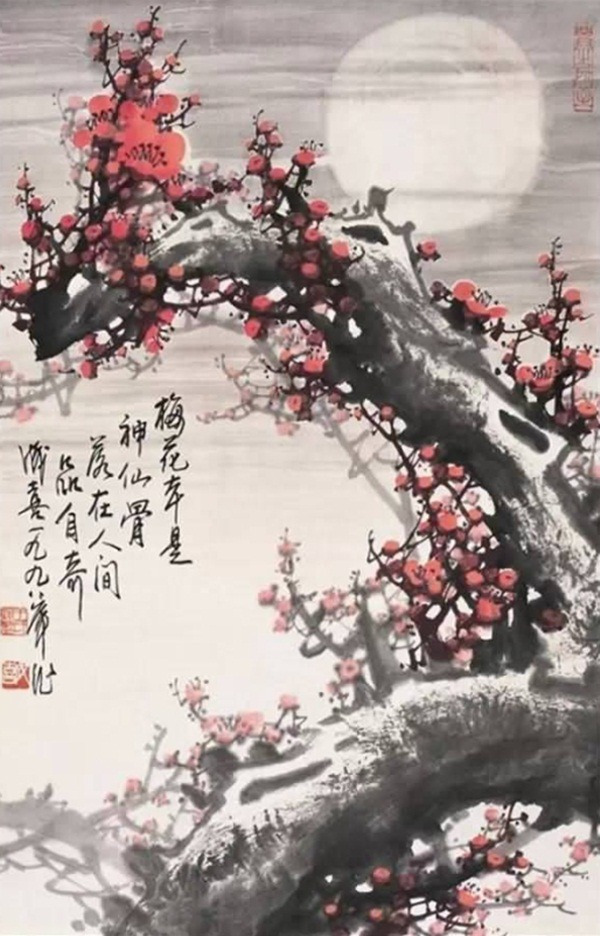 梅花本是
神仙骨
落在人间
品自奇
成喜一九九八年作